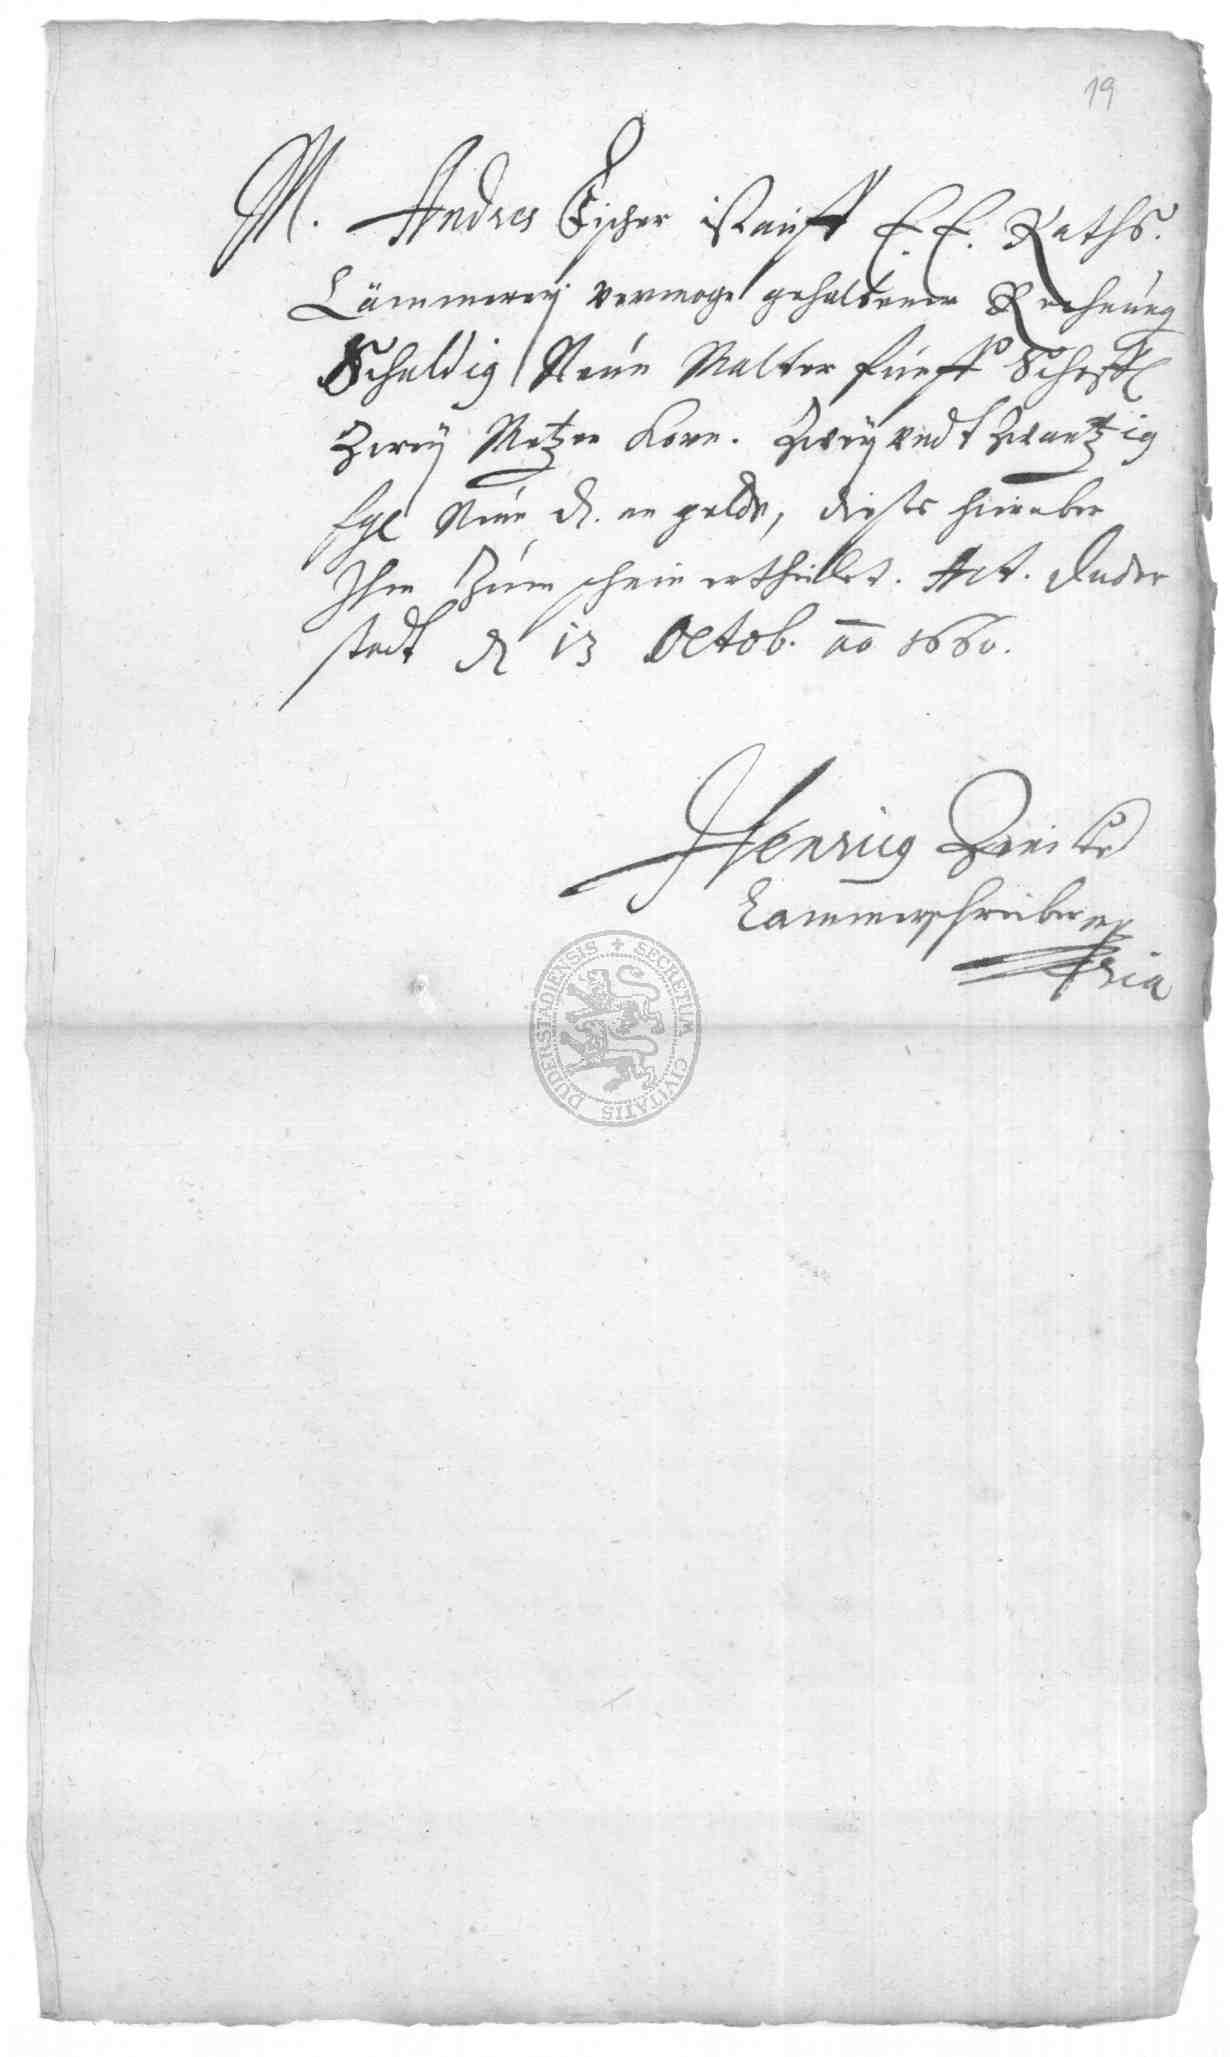 19
M. Andres Eischer ist auff E. E. Raths.
Cämmereÿ vermoge gehaltener Rechnung
Schuldig Neun Malter funff Scheffl
Zweÿ Metzen Korn. Zweÿ undt Zwantzig
fgl Neun d. an gelde, dieses hierüber
Ihm Zum schein ertheilet. Act. Duder
stadt d 13 Octob. ao 1660.
Henricg
Cammerschreiber mp
pria
DUDERSTADIENSIS + SECRETUM CIVITATIS